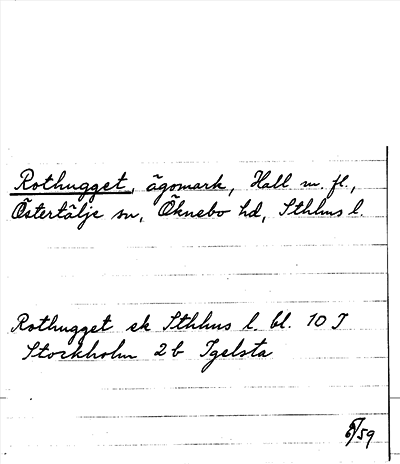 Rothugget, ägomark, Hall m. fl.,
Östertälje sn, Öknebo hd, Sthlms l.
Rothugget ek Sthlms l. bl. 10 J
Stockholm 2 b Igelsta
6/59